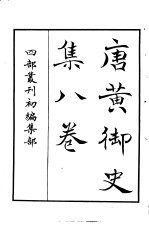 唐黃御史
集八卷
四部叢刊初編集部